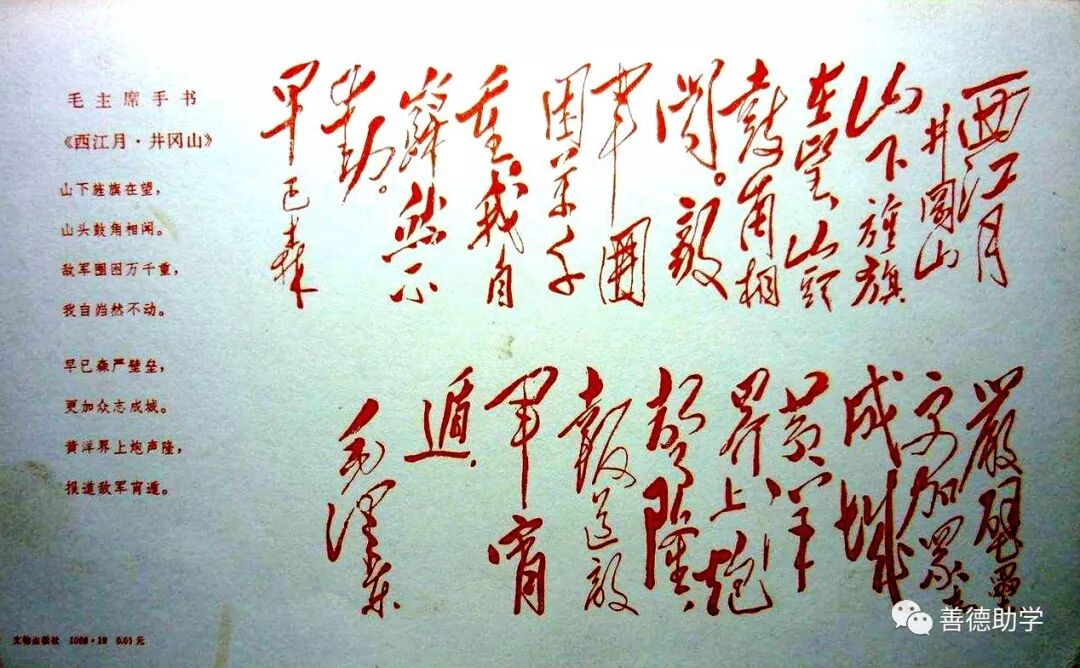 毛主席手书
《西江月·井冈山》
山下旌旗在望，
山头鼓角相闻。
敌军围困万千重，
我自岿然不动。
早已森严壁垒，
更加众志成城。
黄洋界上炮声隆，
报道敌军宵遁。
文物出版社 0.01元
西江月
井冈山
山下旌旗
在望山头
鼓角相
闻。敌
军围
困万千
重。我自
岿然不
动。
早已森
严壁垒
更加众志
成城
黄洋
界上炮
声隆
报道敌
军宵
遁，
毛泽东
善德助学